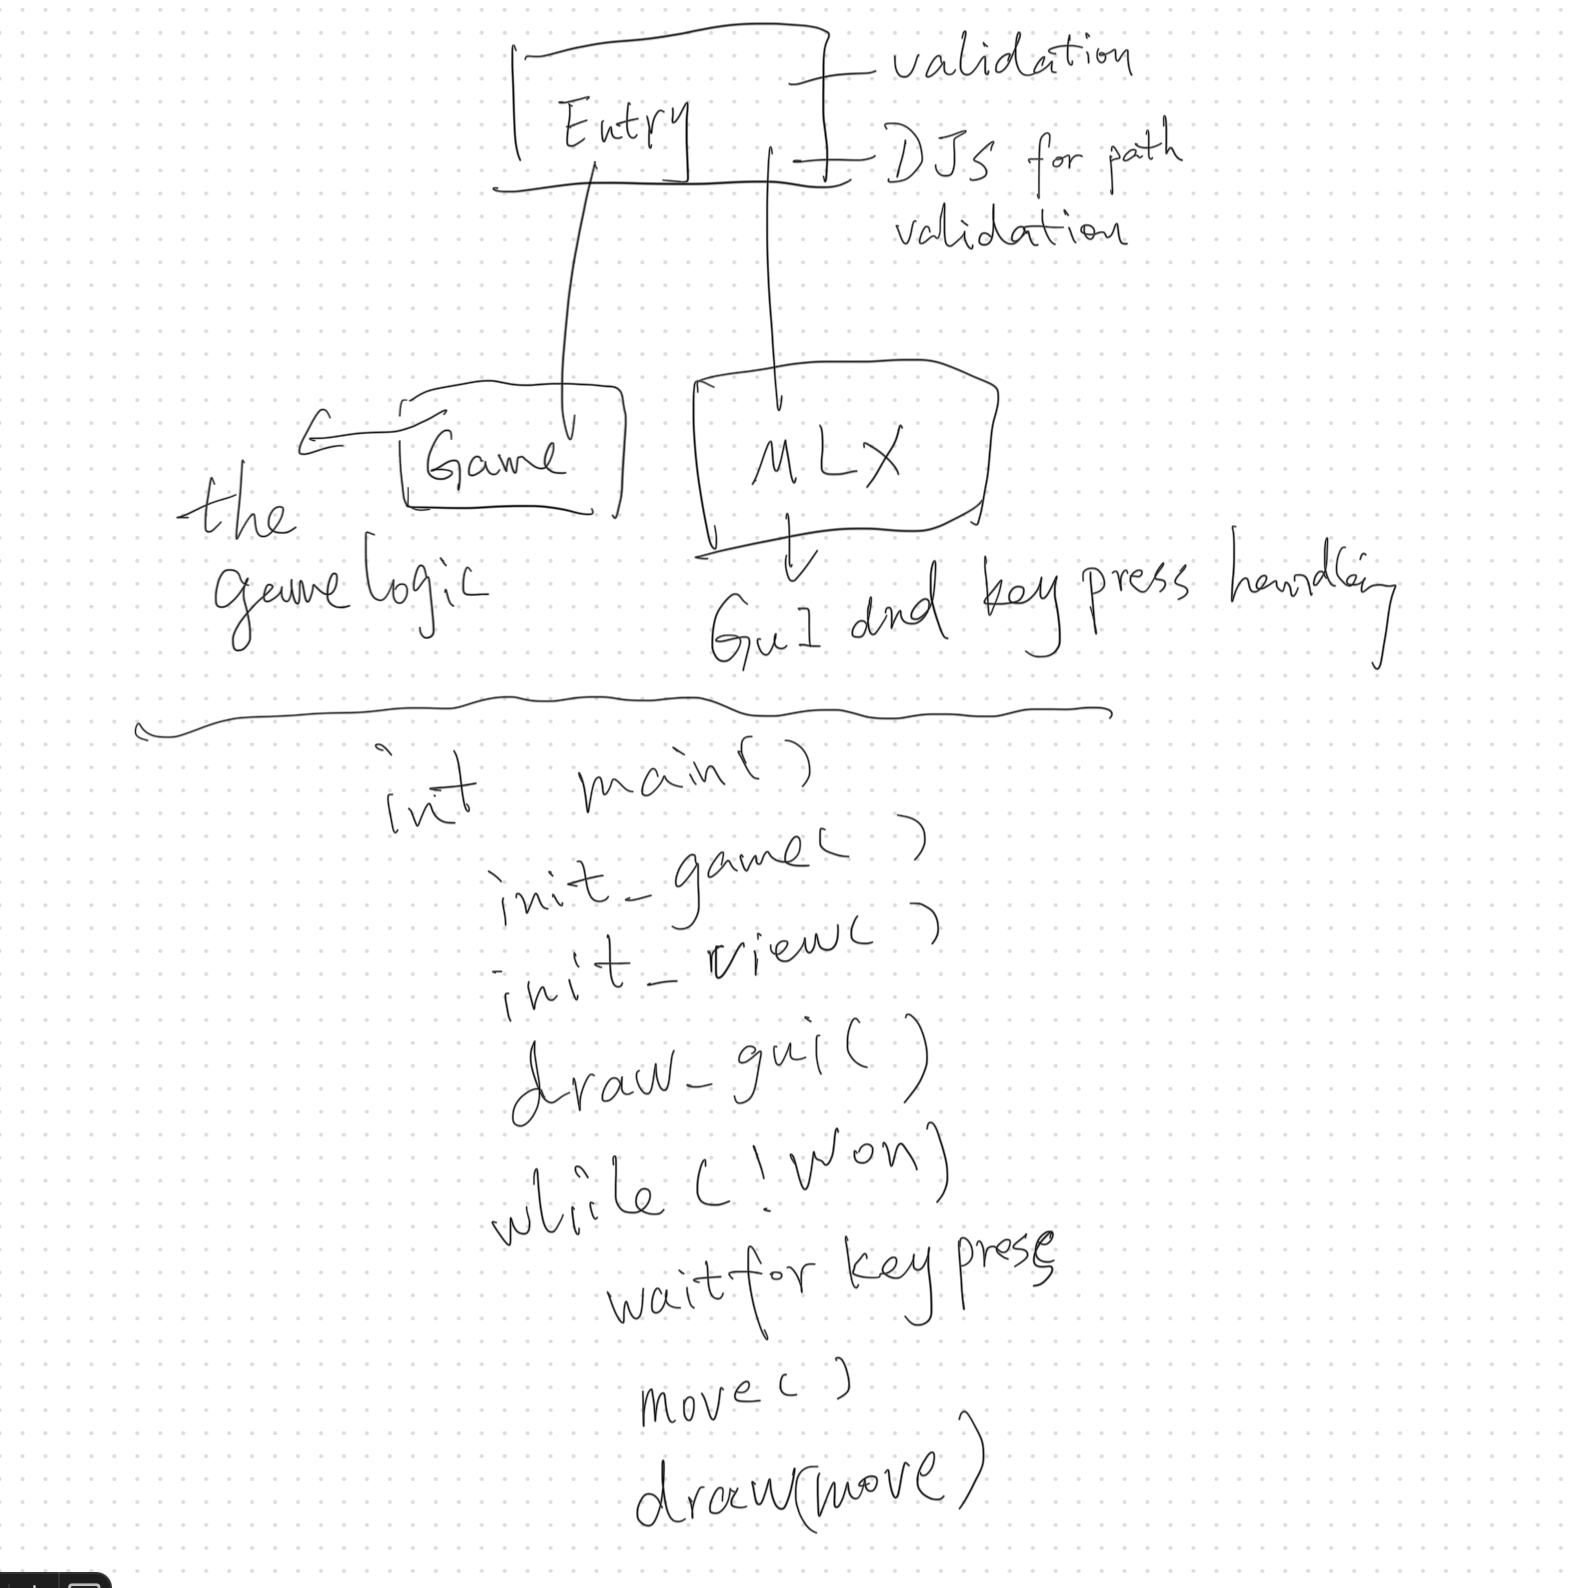 Entry
validation
DJS for path
validation
Game
MLX
the
game logic
GuI and key press handling
int main()
init_game( )
init_view( )
draw_gui( )
while (!won)
wait for key press
move( )
draw(move)